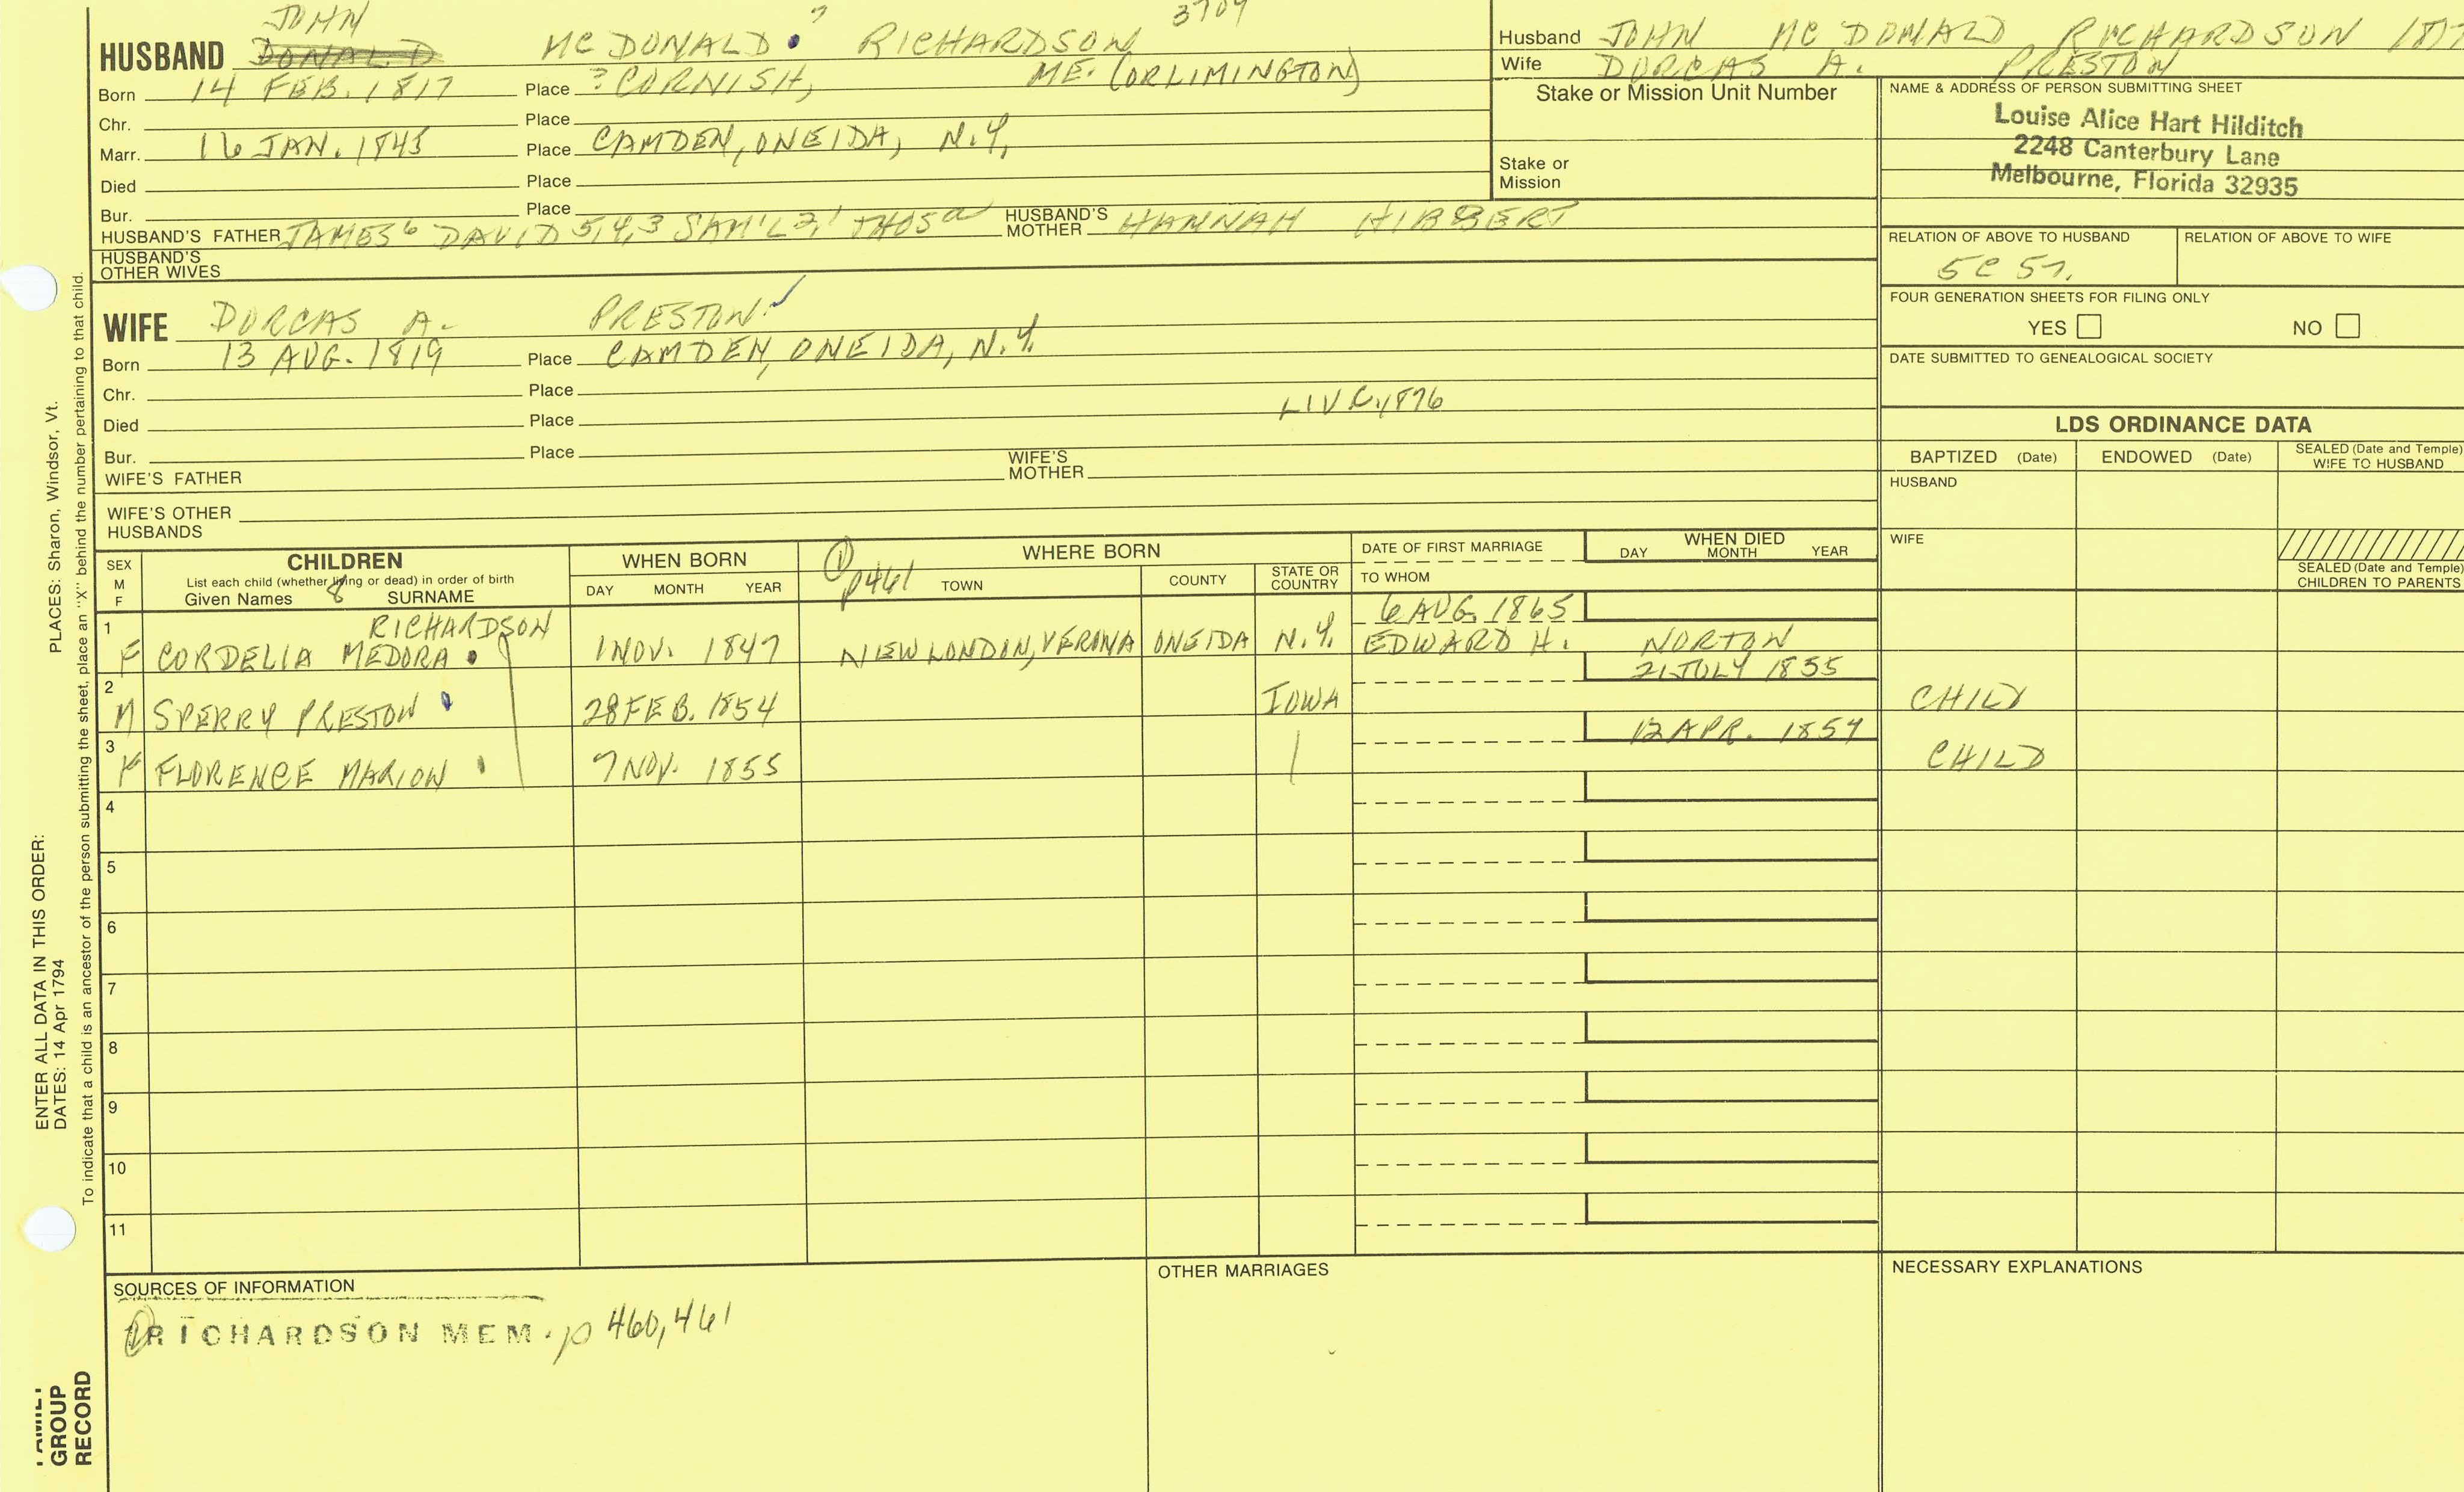 JOHN ? 3704
HUSBAND DONALD MC DONALD RICHARDSON
Born 14 FEB. 1817 Place ? CORNISH, ME. (OR LIMINGTON)
Chr. Place
Marr. 16 JAN. 1845 Place CAMDEN, ONEIDA, N.Y.
Died Place
Bur. Place
HUSBAND'S FATHER JAMES6 DAVID 5,4,3 SAM'L 2,1 THOS HUSBAND'S MOTHER HANNAH HIBBERT
HUSBAND'S OTHER WIVES
WIFE DORCAS A. PRESTON ✓
Born 13 AUG. 1819 Place CAMDEN, ONEIDA, N.Y.
Chr. Place
LIV 1876
Died Place
Bur. Place
WIFE'S FATHER WIFE'S MOTHER
WIFE'S OTHER HUSBANDS
Husband JOHN MC DONALD RICHARDSON 1817
Wife DORCAS A. PRESTON
Stake or Mission Unit Number
Stake or Mission
NAME & ADDRESS OF PERSON SUBMITTING SHEET
Louise Alice Hart Hilditch
2248 Canterbury Lane
Melbourne, Florida 32935
RELATION OF ABOVE TO HUSBAND RELATION OF ABOVE TO WIFE
5C 5
FOUR GENERATION SHEETS FOR FILING ONLY
YES NO
DATE SUBMITTED TO GENEALOGICAL SOCIETY
LDS ORDINANCE DATA
BAPTIZED (Date) ENDOWED (Date) SEALED (Date and Temple) WIFE TO HUSBAND
HUSBAND
WIFE
SEALED (Date and Temple)
CHILDREN TO PARENTS
SEX M F
CHILDREN
List each child (whether living or dead) in order of birth
Given Names SURNAME
WHEN BORN
DAY MONTH YEAR
① p461
WHERE BORN
TOWN COUNTY STATE OR COUNTRY
DATE OF FIRST MARRIAGE
TO WHOM
WHEN DIED
DAY MONTH YEAR
1 RICHARDSON 6 AUG. 1865
F CORDELIA MEDORA 1 NOV. 1847 NEW LONDON, VERONA ONEIDA N.Y. EDWARD H. NORTON
2 21 JULY 1855
M SPERRY PRESTON 28 FEB. 1854 IOWA CHILD
3 12 APR. 1857
F FLORENCE MARION 7 NOV. 1855 CHILD
4
5
6
7
8
9
10
11
SOURCES OF INFORMATION
① RICHARDSON MEM. p 460, 461
OTHER MARRIAGES
NECESSARY EXPLANATIONS
ENTER ALL DATA IN THIS ORDER:
DATES: 14 Apr 1794 PLACES: Sharon, Windsor, Vt.
To indicate that a child is an ancestor of the person submitting the sheet, place an "X" behind the number pertaining to that child.
FAMILY
GROUP
RECORD